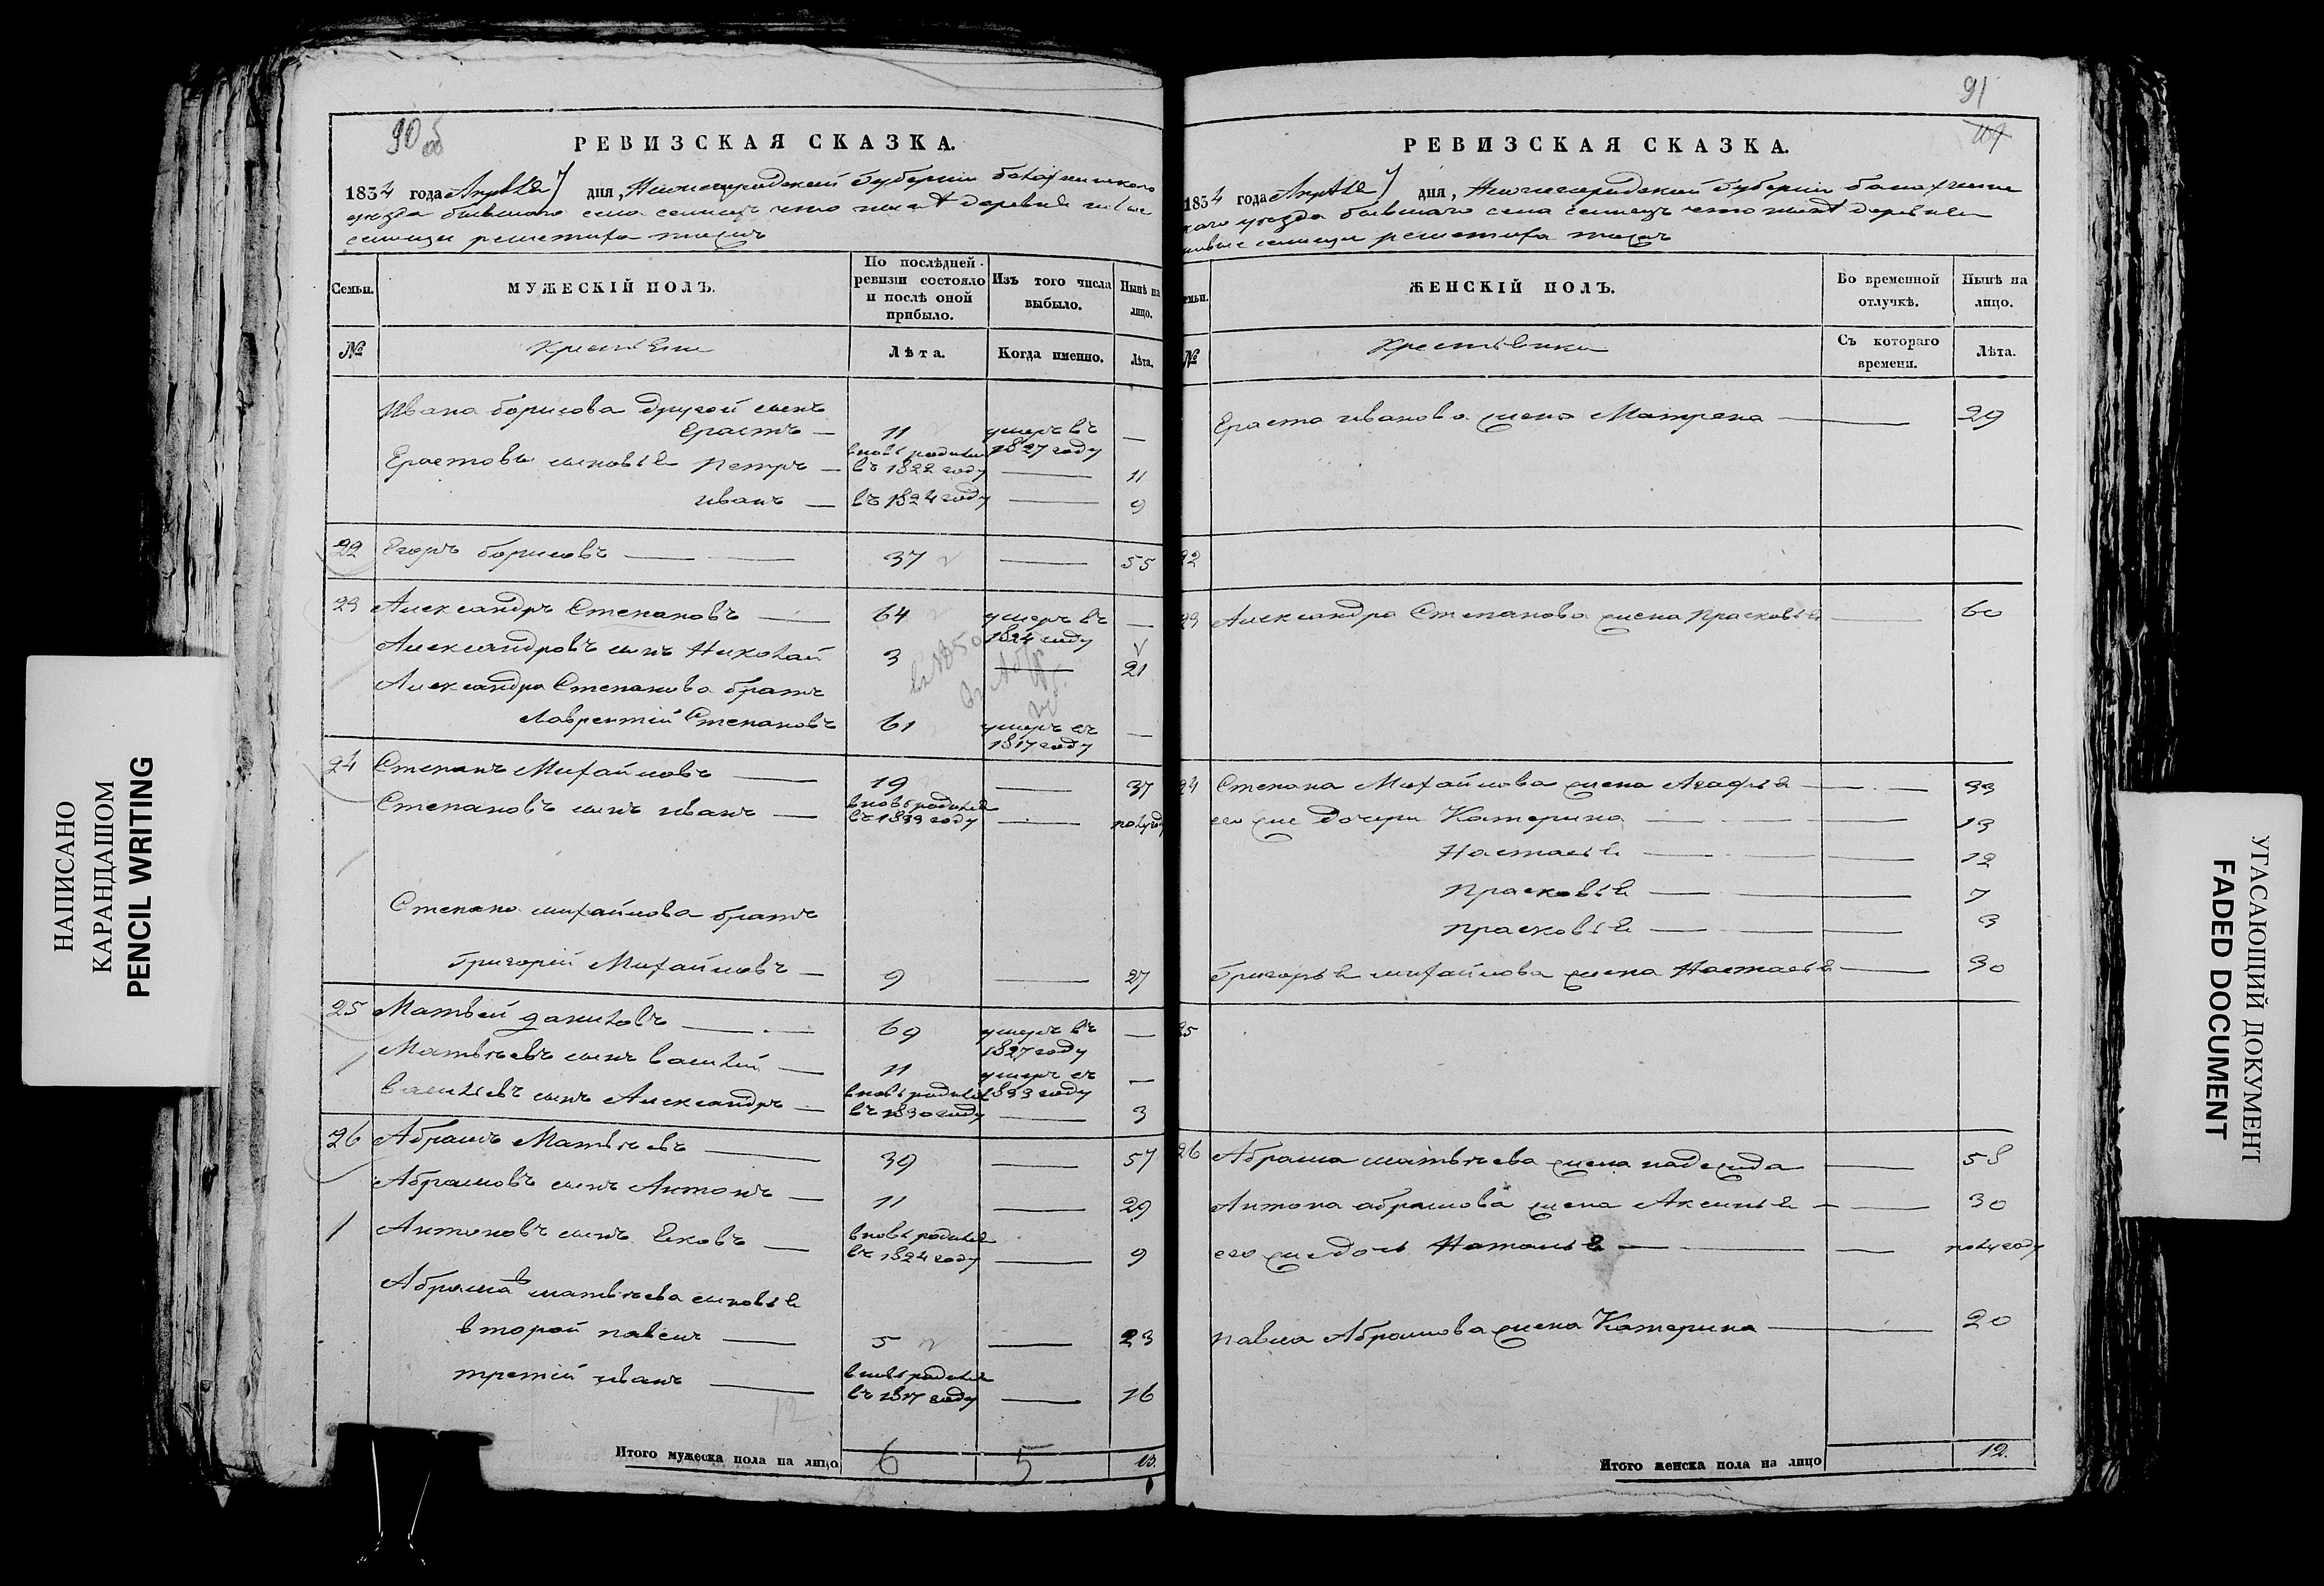 НАПИСАНО
КАРАНДАШОМ
PENCIL WRITING
90 об
РЕВИЗСКАЯ СКАЗКА.
1834 года Апреля 7 дня, Нижегородской Губернии балахнинского
уезда бывшаго села что ныне деревня
Семьи.
МУЖЕСКІЙ ПОЛЪ.
По послѣдней ревизіи состояло и послѣ оной прибыло.
Изъ того числа выбыло.
Нынѣ на лицо.
№
Крестьяне
Лѣта.
Когда именно.
Лѣта.
Ивана борисова другой сынъ
Ерастъ — 11 умеръ въ 1827 году —
Ерастовы сыновья петръ — вновь родился въ 1822 году — 11
иванъ — въ 1824 году — 9
22 Егоръ борисовъ — 37 — 55
23 Александръ Степановъ — 64 умеръ въ 1824 году —
Александровъ сынъ Николай 3 — 21
Александра Степанова братъ
Лаврентій Степановъ 61 умеръ въ 1817 году —
24 Степанъ Михайловъ — 19 — 37
Степановъ сынъ иванъ — вновь родился въ 1833 году — полгода
Степана михайлова братъ
григорей Михайловъ — 9 — 27
25 Матвей даниловъ — 69 умеръ въ 1827 году —
Матвѣевъ сынъ василей — 11 умеръ въ 1833 году —
васильевъ сынъ Александръ — вновь родился въ 1830 году — 3
26 Абрамъ Матвѣевъ — 39 — 57
Абрамовъ сынъ Антонъ — 11 — 29
Антоновъ сынъ Яковъ — вновь родился въ 1824 году — 9
Абрама матвѣева сыновья
второй павелъ — 5 — 23
третій иванъ — вновь родился въ 1817 году — 16
12
Итого мужеска пола на лицо 6 5 13.
91
РЕВИЗСКАЯ СКАЗКА.
1834 года Апреля 7 дня, Нижегородской Губернии балахнинс
каго уезда бывшаго села что ныне деревня
ЖЕНСКІЙ ПОЛЪ.
Во временной отлучкѣ.
Нынѣ на лицо.
№
Крестьянки
Съ котораго времени.
Лѣта.
Ераста иванова жена Матрена — 29
22
23 Александра Степанова жена прасковья — 60
24 Степана Михайлова жена Агафья — 33
его же дочери Катерина — 13
Настасья — 12
прасковья — 7
прасковья — 3
григорья михайлова жена Настасья — 30
25
26 Абрама матвѣева жена надежда — 58
Антона абрамова жена Аксинья — 30
его же дочь Наталья — полугоду
павла Абрамова жена Катерина — 20
Итого женска пола на лицо 12.
УГАСАЮЩИЙ ДОКУМЕНТ
FADED DOCUMENT